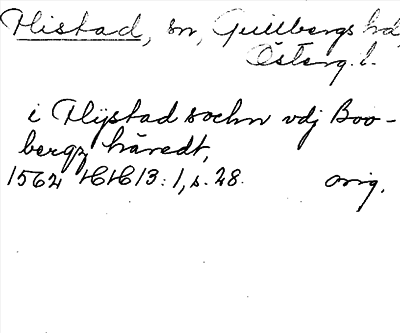 Flistad, sn, Gullbergs hd,
Österg. l.
i Flÿstad sochn vdj Boo-
bergz häredt,
1562 HH 13:1, s. 28. orig.